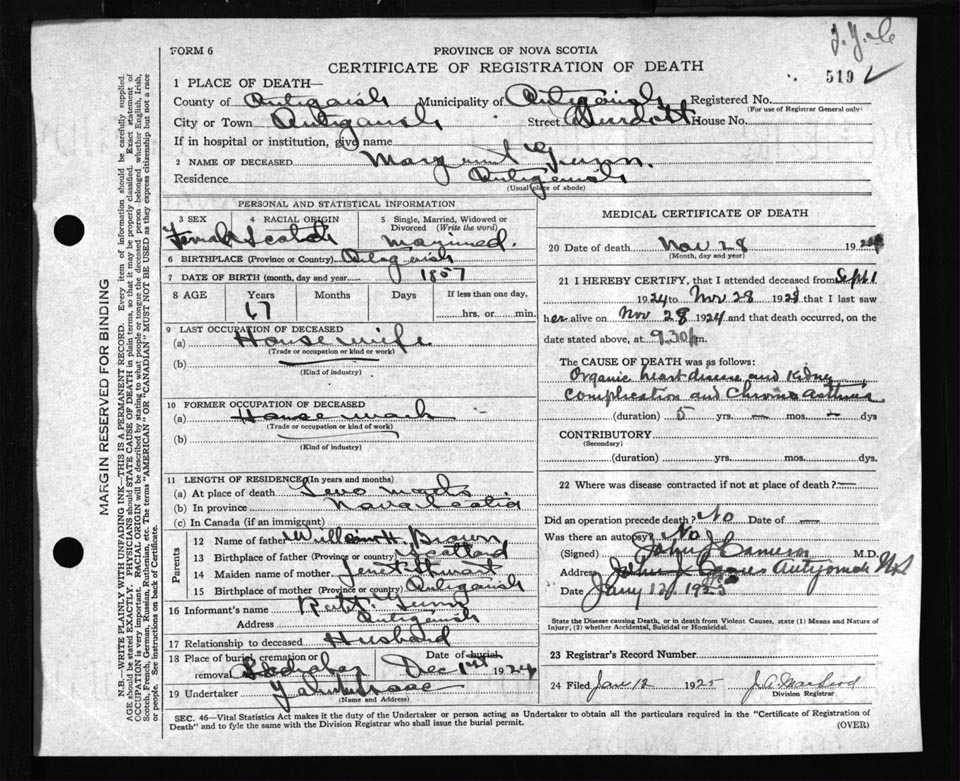 FORM 6
PROVINCE OF NOVA SCOTIA
CERTIFICATE OF REGISTRATION OF DEATH
519
1 PLACE OF DEATH—
County of Antigonish Municipality of Antigonish Registered No.
(For use of Registrar General only)
City or Town Antigonish Street House No.
If in hospital or institution, give name
2 NAME OF DECEASED Margaret
Residence Antigonish
(Usual place of abode)
PERSONAL AND STATISTICAL INFORMATION
3 SEX 4 RACIAL ORIGIN 5 Single, Married, Widowed or Divorced (Write the word)
Female Scotch Married.
6 BIRTHPLACE (Province or Country) Antigonish
7 DATE OF BIRTH (month, day and year) 1857
8 AGE Years Months Days If less than one day,
67 hrs. or min.
9 LAST OCCUPATION OF DECEASED
(a) House wife
(Trade or occupation or kind or work)
(b)
(Kind of industry)
10 FORMER OCCUPATION OF DECEASED
(a) House work
(Trade or occupation or kind of work)
(b)
(Kind of industry)
11 LENGTH OF RESIDENCE (In years and months)
(a) At place of death
(b) In province Nova Scotia
(c) In Canada (if an immigrant)
Parents
12 Name of father William H. Brown
13 Birthplace of father (Province or country) Scotland
14 Maiden name of mother
15 Birthplace of mother (Province or country) Antigonish
16 Informant's name
Address Antigonish
17 Relationship to deceased Husband
18 Place of burial, cremation or removal Date of burial, Dec 1st 1924
19 Undertaker
(Name and Address)
MEDICAL CERTIFICATE OF DEATH
20 Date of death Nov 28 1924
(Month, day and year)
21 I HEREBY CERTIFY, that I attended deceased from Sept 1
1924 to Nov 28 1924 that I last saw
her alive on Nov 28 1924 and that death occurred, on the
date stated above, at 9.30 pm.
The CAUSE OF DEATH was as follows:
Organic heart disease and Kidney
complication and Chronic asthma
(duration) 5 yrs. — mos. — dys
CONTRIBUTORY
(Secondary)
(duration) yrs. mos. dys.
22 Where was disease contracted if not at place of death? —
Did an operation precede death? No Date of —
Was there an autopsy? No
(Signed) John J Cameron M.D.
Address Antigonish N.S
Date Jany 12, 1925
State the Disease causing Death, or in death from Violent Causes, state (1) Means and Nature of
Injury, (2) whether Accidental, Suicidal or Homicidal.
23 Registrar's Record Number
24 Filed Jan 12 1925
Division Registrar
SEC. 46—Vital Statistics Act makes it the duty of the Undertaker or person acting as Undertaker to obtain all the particulars required in the "Certificate of Registration of
Death" and to fyle the same with the Division Registrar who shall issue the burial permit.
(OVER)
MARGIN RESERVED FOR BINDING
N.B.—WRITE PLAINLY WITH UNFADING INK—THIS IS A PERMANENT RECORD. Every item of information should be carefully supplied.
AGE should be stated EXACTLY. PHYSICIANS should STATE CAUSE OF DEATH in plain terms, so that it may be properly classified. Exact statement of
OCCUPATION is very important. RACIAL ORIGIN will be described by stating to what people or tongue the deceased person belonged whether English, Irish,
Scotch, French, German, Russian, Ruthenian, etc. The terms "AMERICAN" OR "CANADIAN" MUST NOT BE USED as they express citizenship but not a race
or people. See instructions on back of Certificate.